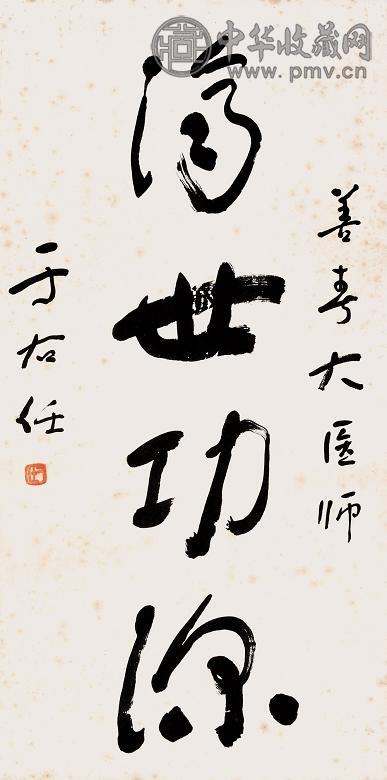 中华收藏网
www.pmv.cn
善寿大医师
济世功深
于右任